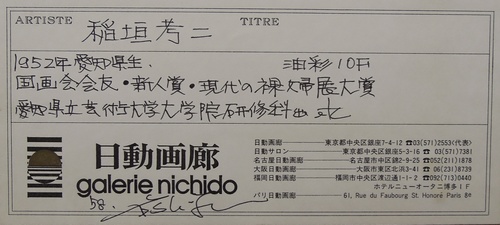 ARTISTE 稲垣考二 TITRE
1952年愛知県生. 油彩10F
国画会会友・新人賞・現代の裸婦展大賞
愛知県立芸術大学大学院研修科出 etc
日動画廊
galerie nichido
日動画廊 東京都中央区銀座7-4-12 ☎03(571)2553<代表>
日動サロン 東京都中央区銀座5-3-16 ☎03(571)7381
名古屋日動画廊 名古屋市中区錦2-9-25 ☎052(211)1878
大阪日動画廊 大阪市東区北浜3-41 ☎06(231)8739
福岡日動画廊 福岡市中央区渡辺通1-1-2 ☎092(713)0440
ホテルニューオータニ博多1F
パリ日動画廊 61, Rue du Faubourg St. Honoré Paris 8e
58.